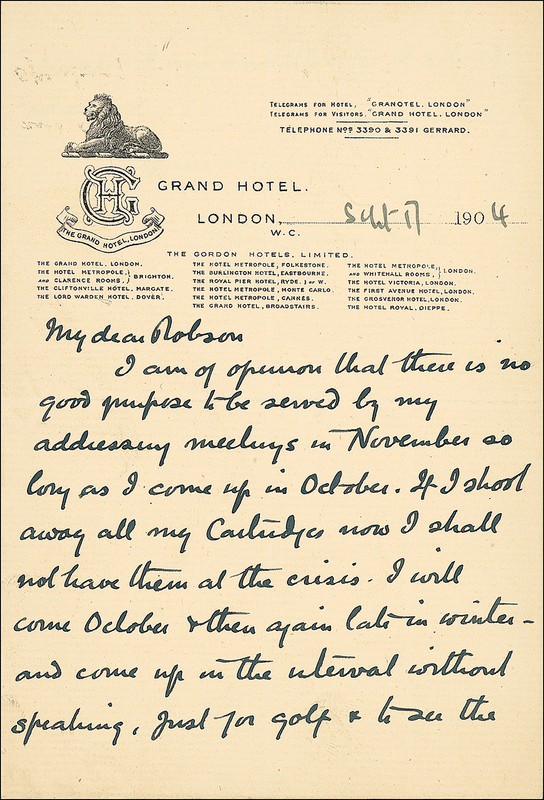 TELEGRAMS FOR HOTEL, "GRANOTEL. LONDON"
TELEGRAMS FOR VISITORS, "GRAND HOTEL. LONDON"
TELEPHONE Nos 3390 & 3391 GERRARD.
GHC
THE GRAND HOTEL, LONDON
GRAND HOTEL.
LONDON, Sept 17 1904
W.C.
THE GORDON HOTELS, LIMITED.
THE GRAND HOTEL, LONDON.
THE HOTEL METROPOLE, } BRIGHTON.
AND CLARENCE ROOMS,
THE CLIFTONVILLE HOTEL, MARGATE.
THE LORD WARDEN HOTEL, DOVER.
THE HOTEL METROPOLE, FOLKESTONE.
THE BURLINGTON HOTEL, EASTBOURNE.
THE ROYAL PIER HOTEL, RYDE. I OF W.
THE HOTEL METROPOLE, MONTE CARLO.
THE HOTEL METROPOLE, CANNES.
THE GRAND HOTEL, BROADSTAIRS.
THE HOTEL METROPOLE, } LONDON.
AND WHITEHALL ROOMS,
THE HOTEL VICTORIA, LONDON.
THE FIRST AVENUE HOTEL, LONDON.
THE GROSVENOR HOTEL, LONDON.
THE HOTEL ROYAL, DIEPPE.
My dear Robson
I am of opinion that there is no
good purpose to be served by my
addressing meetings in November so
long as I come up in October. If I shoot
away all my Cartridges now I shall
not have them at the crisis. I will
come October & then again late in winter -
and come up in the interval without
speaking, just for golf & to see the